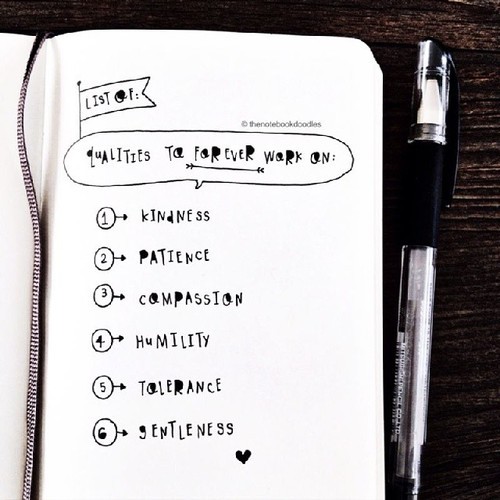 LIST OF:
© thenotebookdoodles
QUALITIES TO FOREVER WORK ON:
1 KINDNESS
2 PATIENCE
3 COMPASSION
4 HUMILITY
5 TOLERANCE
6 GENTLENESS